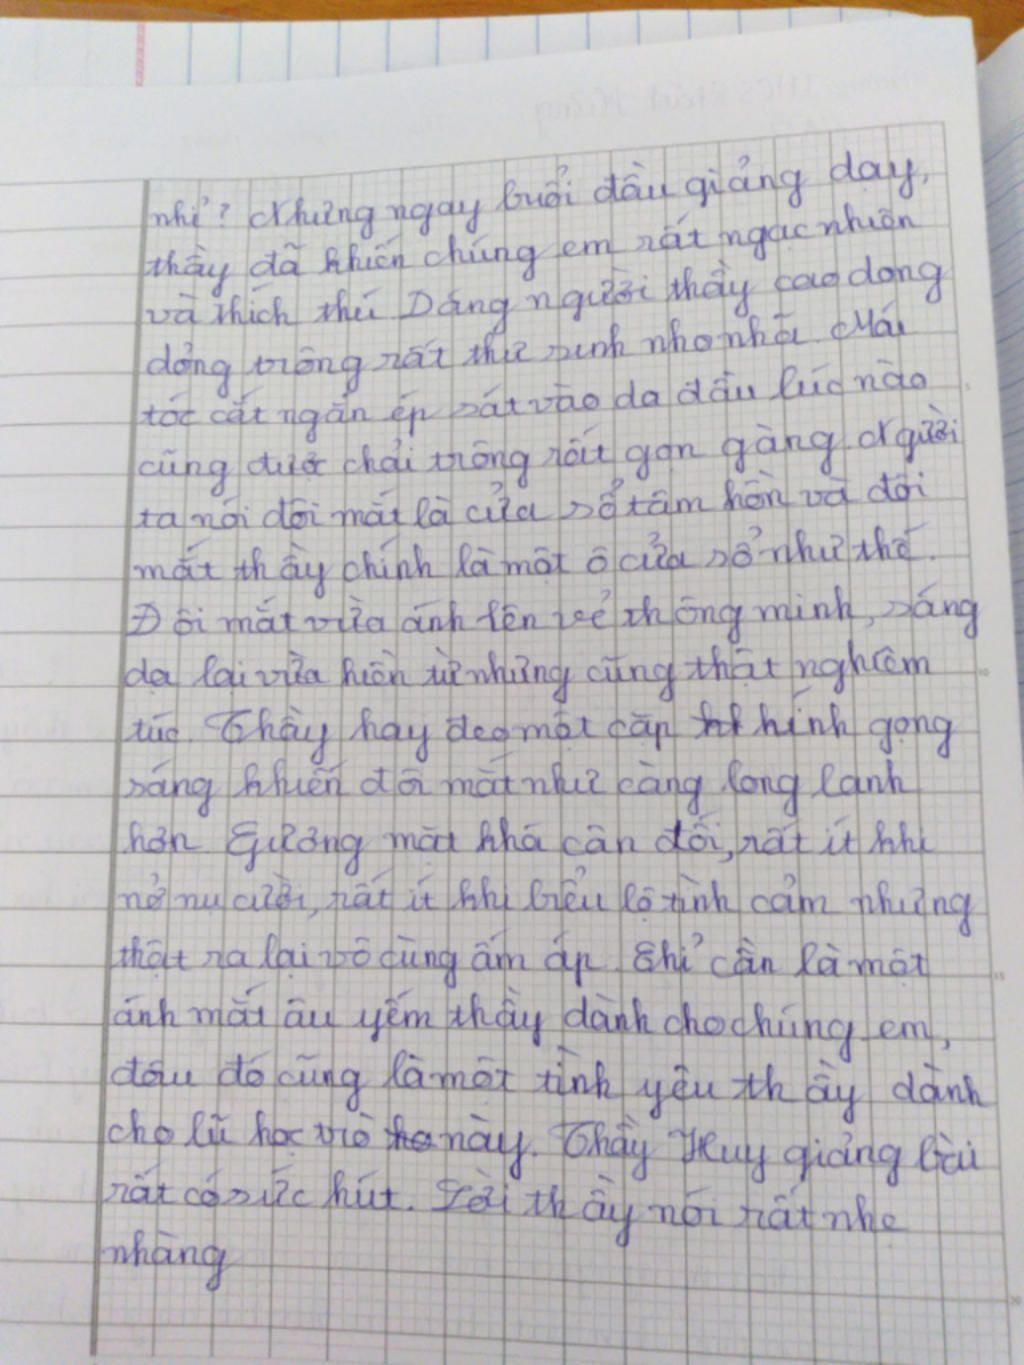 nhỉ? Nhưng ngay buổi đầu giảng dạy,
thầy đã khiến chúng em rất ngạc nhiên
và thích thú Dáng người thầy cao dong
dỏng trông rất thư sinh nho nhã. Mái
tóc cắt ngắn ép sát vào da đầu lúc nào
cũng được chải trông rất gọn gàng. Người
ta nói đôi mắt là cửa sổ tâm hồn và đôi
mắt thầy chính là một ô cửa sổ như thế.
Đôi mắt vừa ánh lên vẻ thông minh, sáng
dạ lại vừa hiền từ nhưng cũng thật nghiêm
túc. Thầy hay đeo một cặp kính gọng
sáng khiến đôi mắt như càng long lanh
hơn. Gương mặt khá cân đối, rất ít khi
nở nụ cười, rất ít khi biểu lộ tình cảm nhưng
thật ra lại vô cùng ấm áp. Chỉ cần là một
ánh mắt âu yếm thầy dành cho chúng em,
đâu đó cũng là một tình yêu thầy dành
cho lũ học trò này. Thầy Huy giảng bài
rất có sức hút. Lời thầy nói rất nhẹ
nhàng